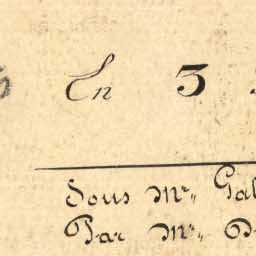 En 3
Sous Mr,, Gal
Par Mr,, D